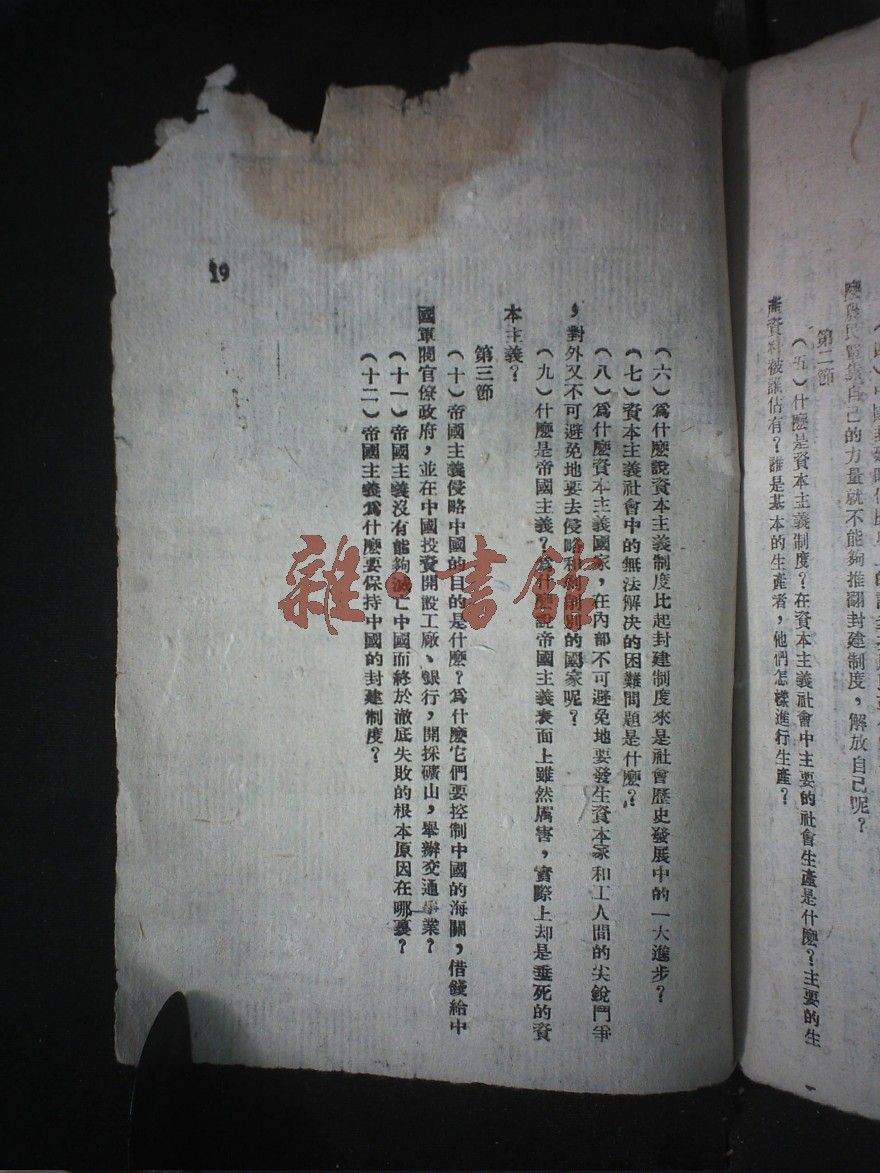 麼農民單靠自己的力量就不能夠推翻封建制度，解放自己呢？
第二節
（五）什麼是資本主義制度？在資本主義社會中主要的社會生產是什麼？主要的生
產資料被誰佔有？誰是基本的生產者，他們怎樣進行生產？
（六）爲什麼說資本主義制度比起封建制度來是社會歷史發展中的一大進步？
（七）資本主義社會中的無法解决的困難問題是什麼？
（八）爲什麼資本主義國家，在內部不可避免地要發生資本家和工人間的尖銳鬥爭
，對外又不可避免地要去侵略和剝削別的國家呢？
（九）什麼是帝國主義？爲什麼說帝國主義表面上雖然厲害，實際上却是垂死的資
本主義？
第三節
（十）帝國主義侵略中國的目的是什麼？爲什麼它們要控制中國的海關，借錢給中
國軍閥官僚政府，並在中國投資開設工廠、銀行，開採礦山，舉辦交通事業？
（十一）帝國主義沒有能夠滅亡中國而終於澈底失敗的根本原因在哪裏？
（十二）帝國主義爲什麼要保持中國的封建制度？
19
雜·書館